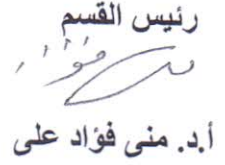 رئيس القسم
أ.د. منى فؤاد على